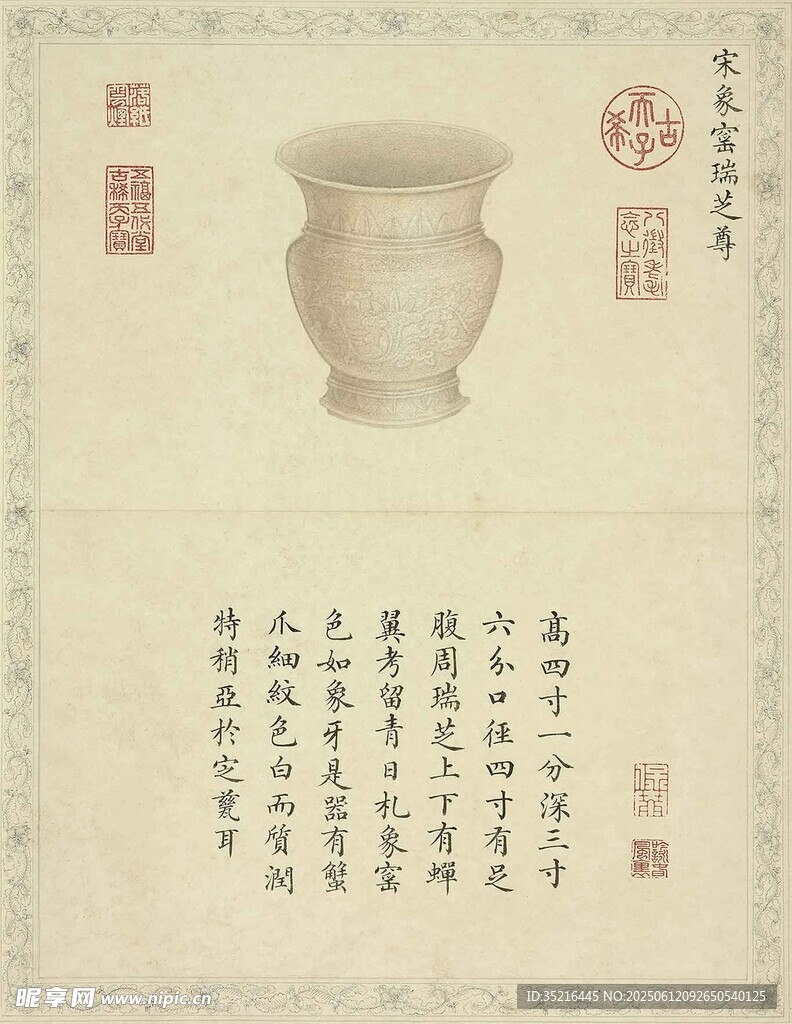 宋象窑瑞芝尊
古希天子
八徵耄念之寶
五福五代堂古稀天子寶
高四寸一分深三寸
六分口徑四寸有足
腹周瑞芝上下有蟬
翼考留青日札象窑
色如象牙是器有蟹
爪細紋色白而質潤
特稍亞於定甆耳
昵享网 www.nipic.cn
ID:35216445 NO:20250612092650540125